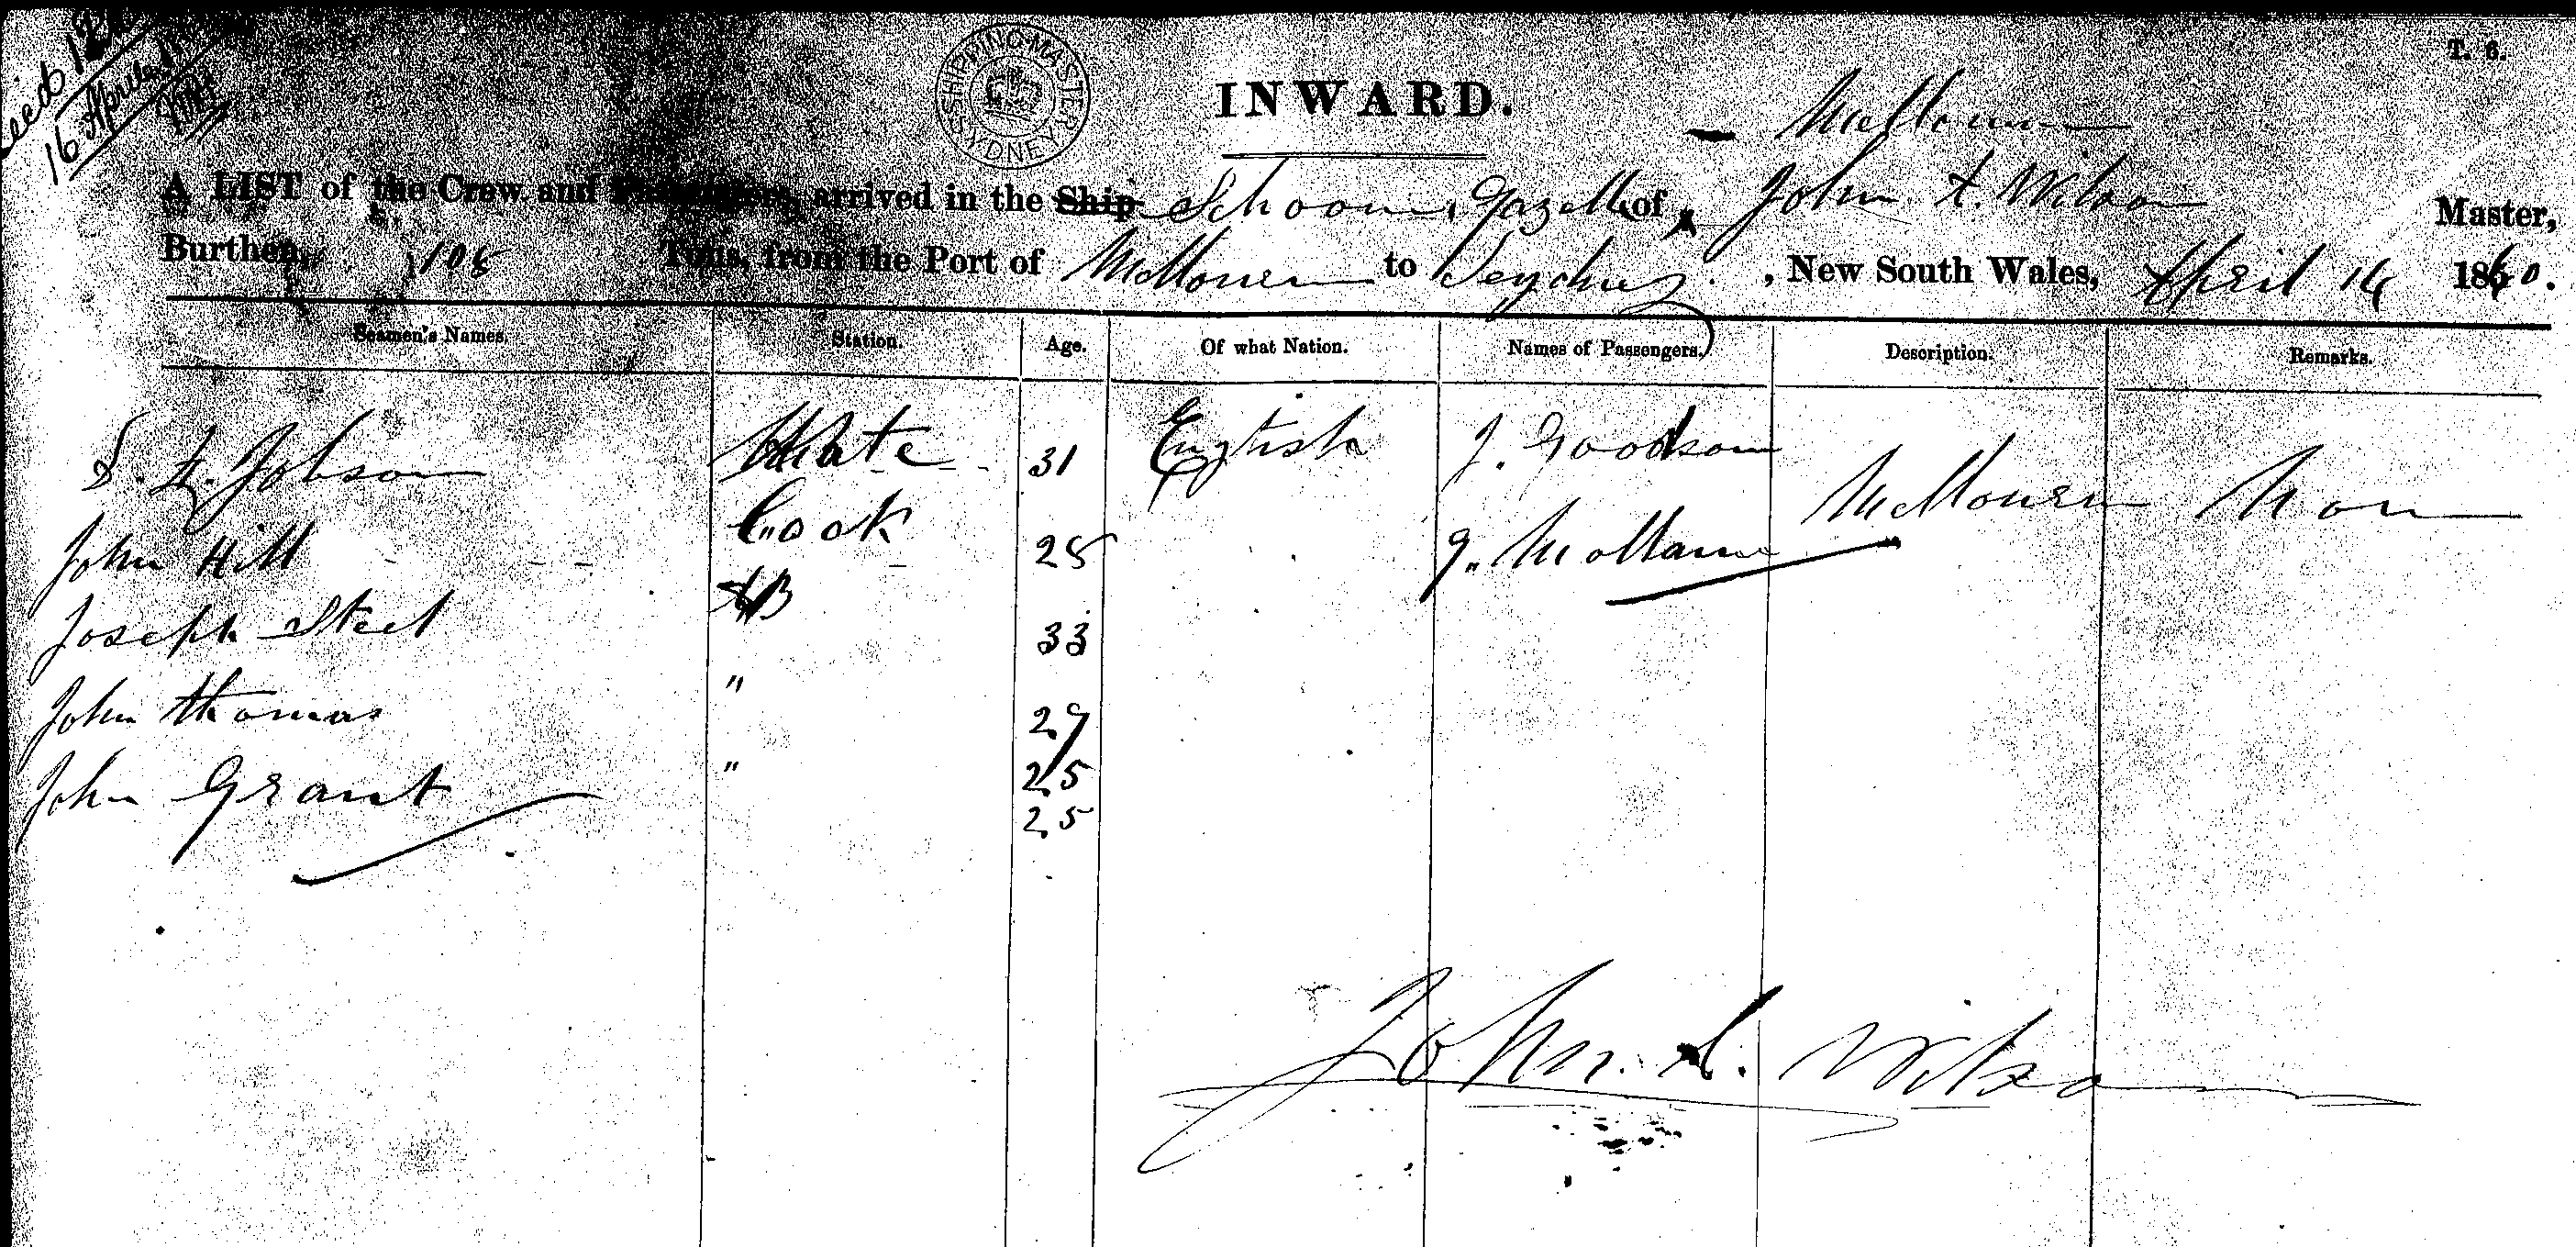 T. 6.
SHIPPING MASTER SYDNEY
16 April
INWARD.
Melbourne
A LIST of the Crew and Passengers, arrived in the Ship Schooner Gazelle of John F. Wilson Master,
Burthen, 108 Tons, from the Port of Melbourne to Sydney, New South Wales, April 14 1860.
Seamen's Names. Station. Age. Of what Nation. Names of Passengers. Description. Remarks.
Jobson Mate 31 English J. Goodson
John Hill Cook 25 Melbourn Non
Joseph Steel AB 33
John thomas " 29
John Grant " 25
25
John. Wilson